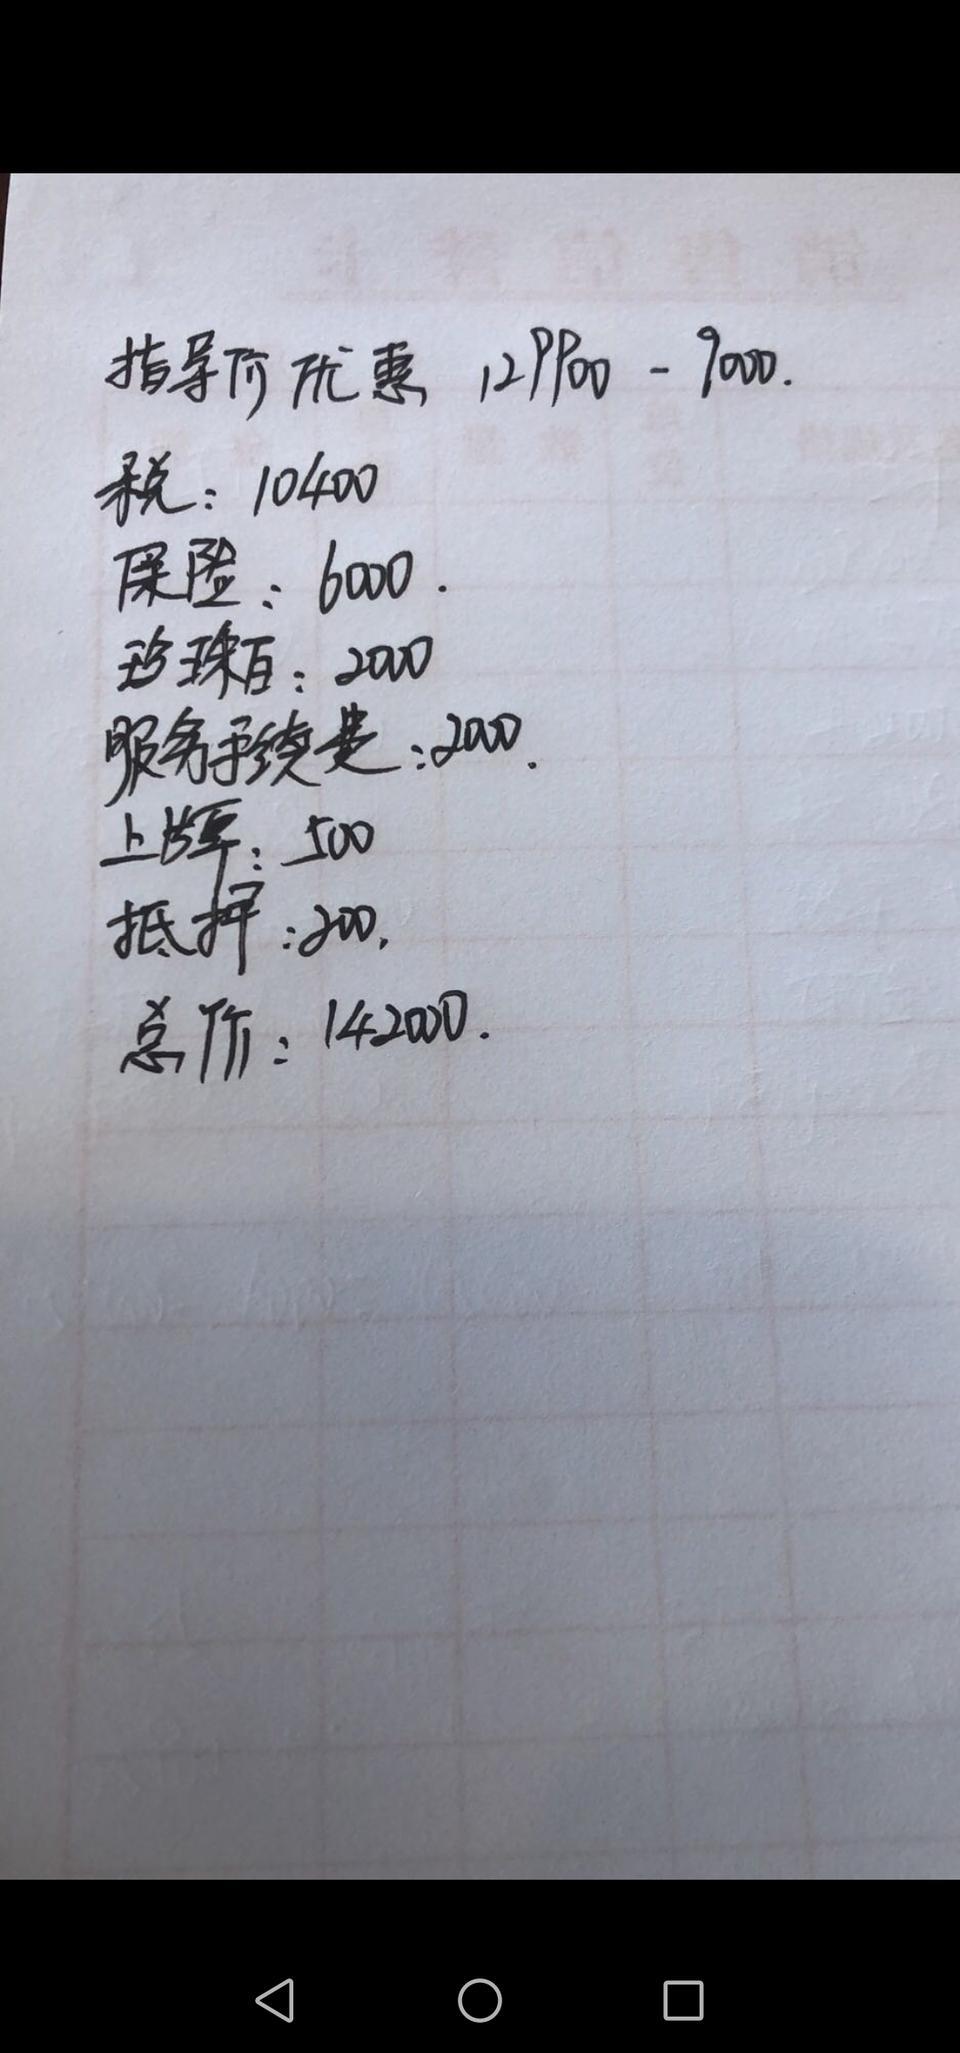 指导价优惠 129900 - 9000.
税: 10400
保险: 6000.
珍珠白: 2000
服务手续费: 2000.
上牌: 500
抵押: 200.
总价: 142000.